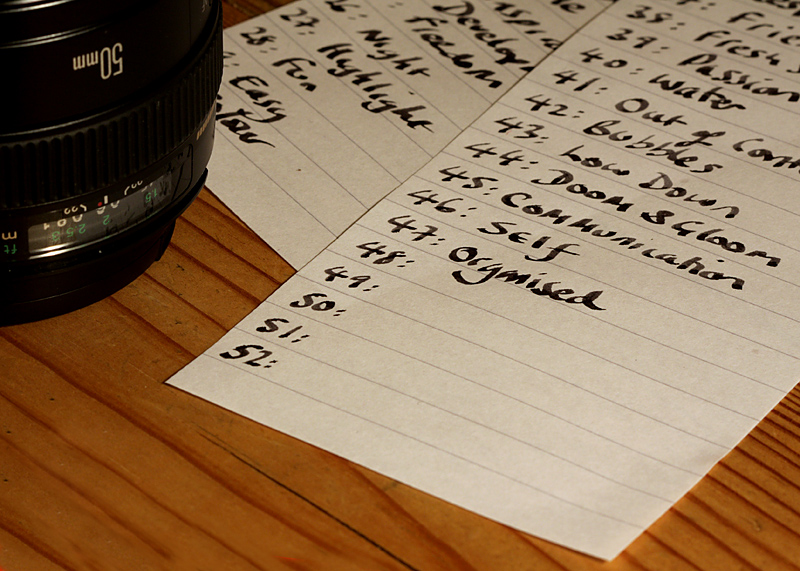 50mm
Develop
Freedom
26: Night
27: Highlight
28: Fun
Easy
Frie
38: Fresh S
39: Passion
40: Water
41: Out of Com
42: Bubbles
43: Low Down
44: Doom & Gloom
45: Communication
46: Self
47: Orgnised
48:
49:
50:
51:
52: